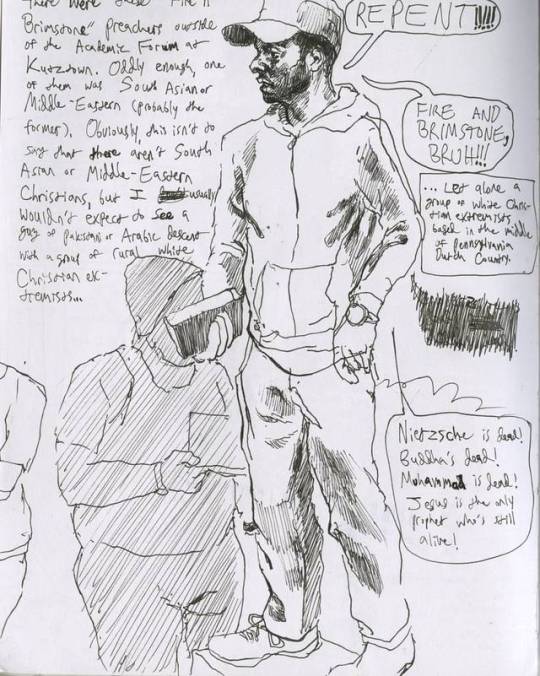 There were these "Fire n'
Brimstone" preachers outside
of the Academic Forum at
Kutztown. Oddly enough, one
of them was South Asian or
Middle-Eastern (probably the
former). Obviously, this isn't to
say that there aren't South
Asian or Middle-Eastern
Christians, but I usually
wouldn't expect to see a
guy of Pakistani or Arabic descent
with a group of rural white
Christian ex-
tremists...
REPENT!!!!!
FIRE AND
BRIMSTONE,
BRUH!!!
... Let alone a
group of white Chris-
tian extremists
based in the middle
of Pennsylvania
Dutch Country.
Nietzsche is dead!
Buddha's dead!
Muhammad is dead!
Jesus is the only
prophet who's still
alive!